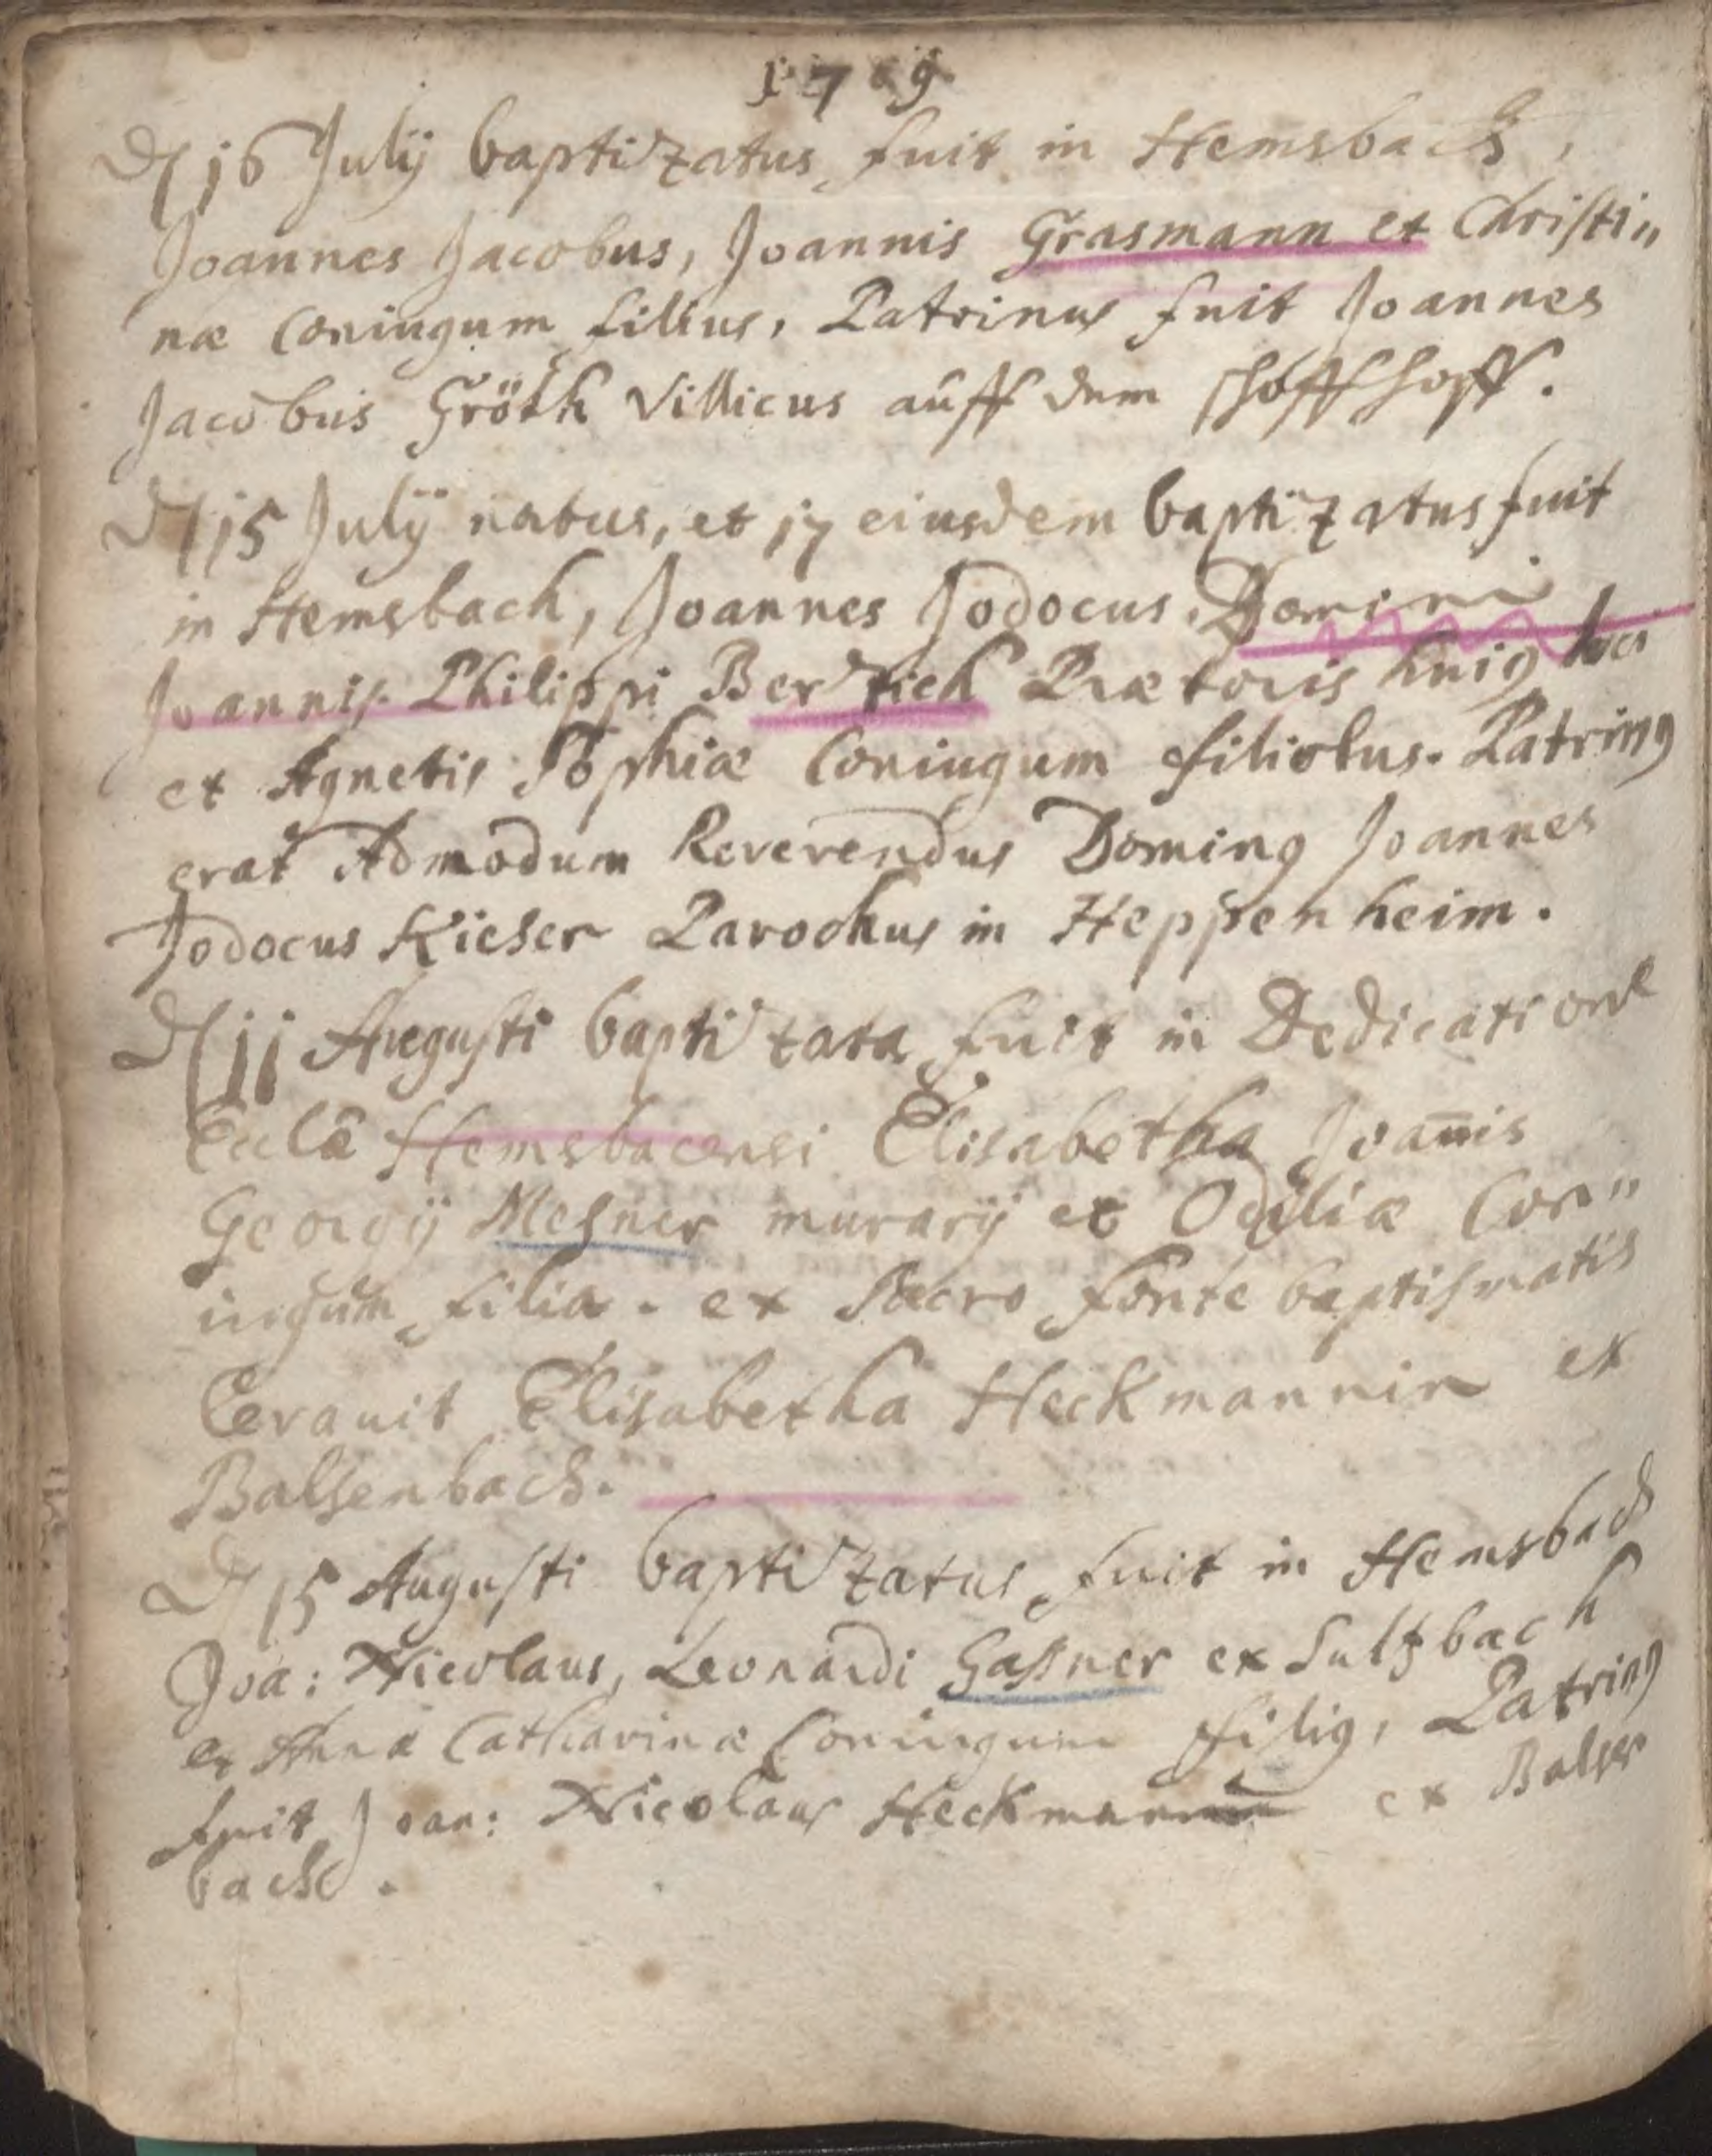 1709
D 16 Julÿ baptizatus fuit in Hemsbach,
Joannes Jacobus, Joannis Grasmann et Christi„
næ Coniugum filius, Patrinus fuit Joannes
Jacobus Gröth Villicus auff dem schoffhoff.
D 15 Julÿ natus, et 17 eiusdem baptizatus fuit
in Hemsbach, Joannes Jodocus, Domini
Joannis Philippi Bertzich Prætoris huig loci
et Agnetis Sophiæ Coniugum filiolus. Patring
erat Admodum Reverendus Doming Joannes
Jodocus Kieser Parochus in Heppenheim.
D 11 Augusti baptizata fuit in Dedicatione
Ecclâ Hemsbacensi Elisabetha Joan̄is
Georgÿ Mesner murarÿ et Odiliæ Con„
iugum filia. ex Sacro fonte baptismatis
levauit Elisabetha Heckmannin ex
Balsenbach.
D 15 Augusti baptizatus fuit in Hemsbach
Joa: Nicolaus, Leonardi Gassner ex Sultzbach
et Anna Catharinæ Coniugum filig, Patring
fuit Joan: Nicolaus Heckmann ex Balser
bach.